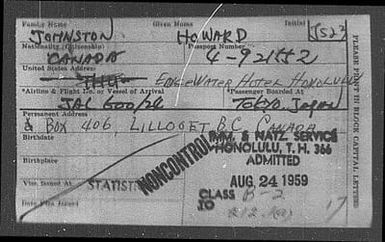 Family Name Given Names Initial
JOHNSTON HOWARD
Nationality (Citizenship) Passport Number
CANADA 4-921552
United States Address
EDGEWATER HOTEL HONOLULU
*Airline & Flight No. or Vessel of Arrival *Passenger Boarded At
JAL 600/24 TOKYO JAPAN
Permanent Address
BOX 406, LILLOOET B.C. CANADA
Birthdate
IMM. & NATZ. SERVICE
HONOLULU, T. H. 366
Birthplace
ADMITTED
NONCONTROL
Visa Issued at
STATIST
AUG. 24 1959
CLASS B-2
Date Visa Issued
TO
17
PLEASE PRINT IN BLOCK CAPITAL LETTERS